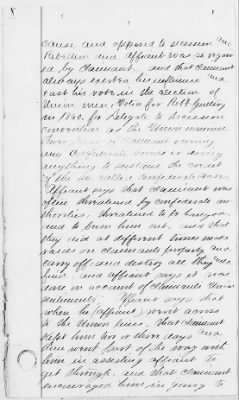 cause and opposed to secession and
Rebellion and Affiant was so regarded
by Claimant, and that claimant
always exerted his influence and
cast his vote in the election of
Union men, Voted for Robt
in 1860, for delegate to secession
convention as the Union nominee
claimant
Confederate bonds or done
anything to sustain the credit
of the so called confederate States
Affiant says that claimant was
often threatened by confederate au-
thorities, threatened to be hung
and to burn him out, and that
they did at different times make
raids on claimants property and
carry off and destroy all they could
find, and affiant says it was
done on account of claimants Union
sentiments, Affiant says that
when he (affiant), went across
to the Union lines, that claimant
kept him two or three days and
then went part of the way with
him in assisting affiant to
get through, and that claimant
encouraged him in going to